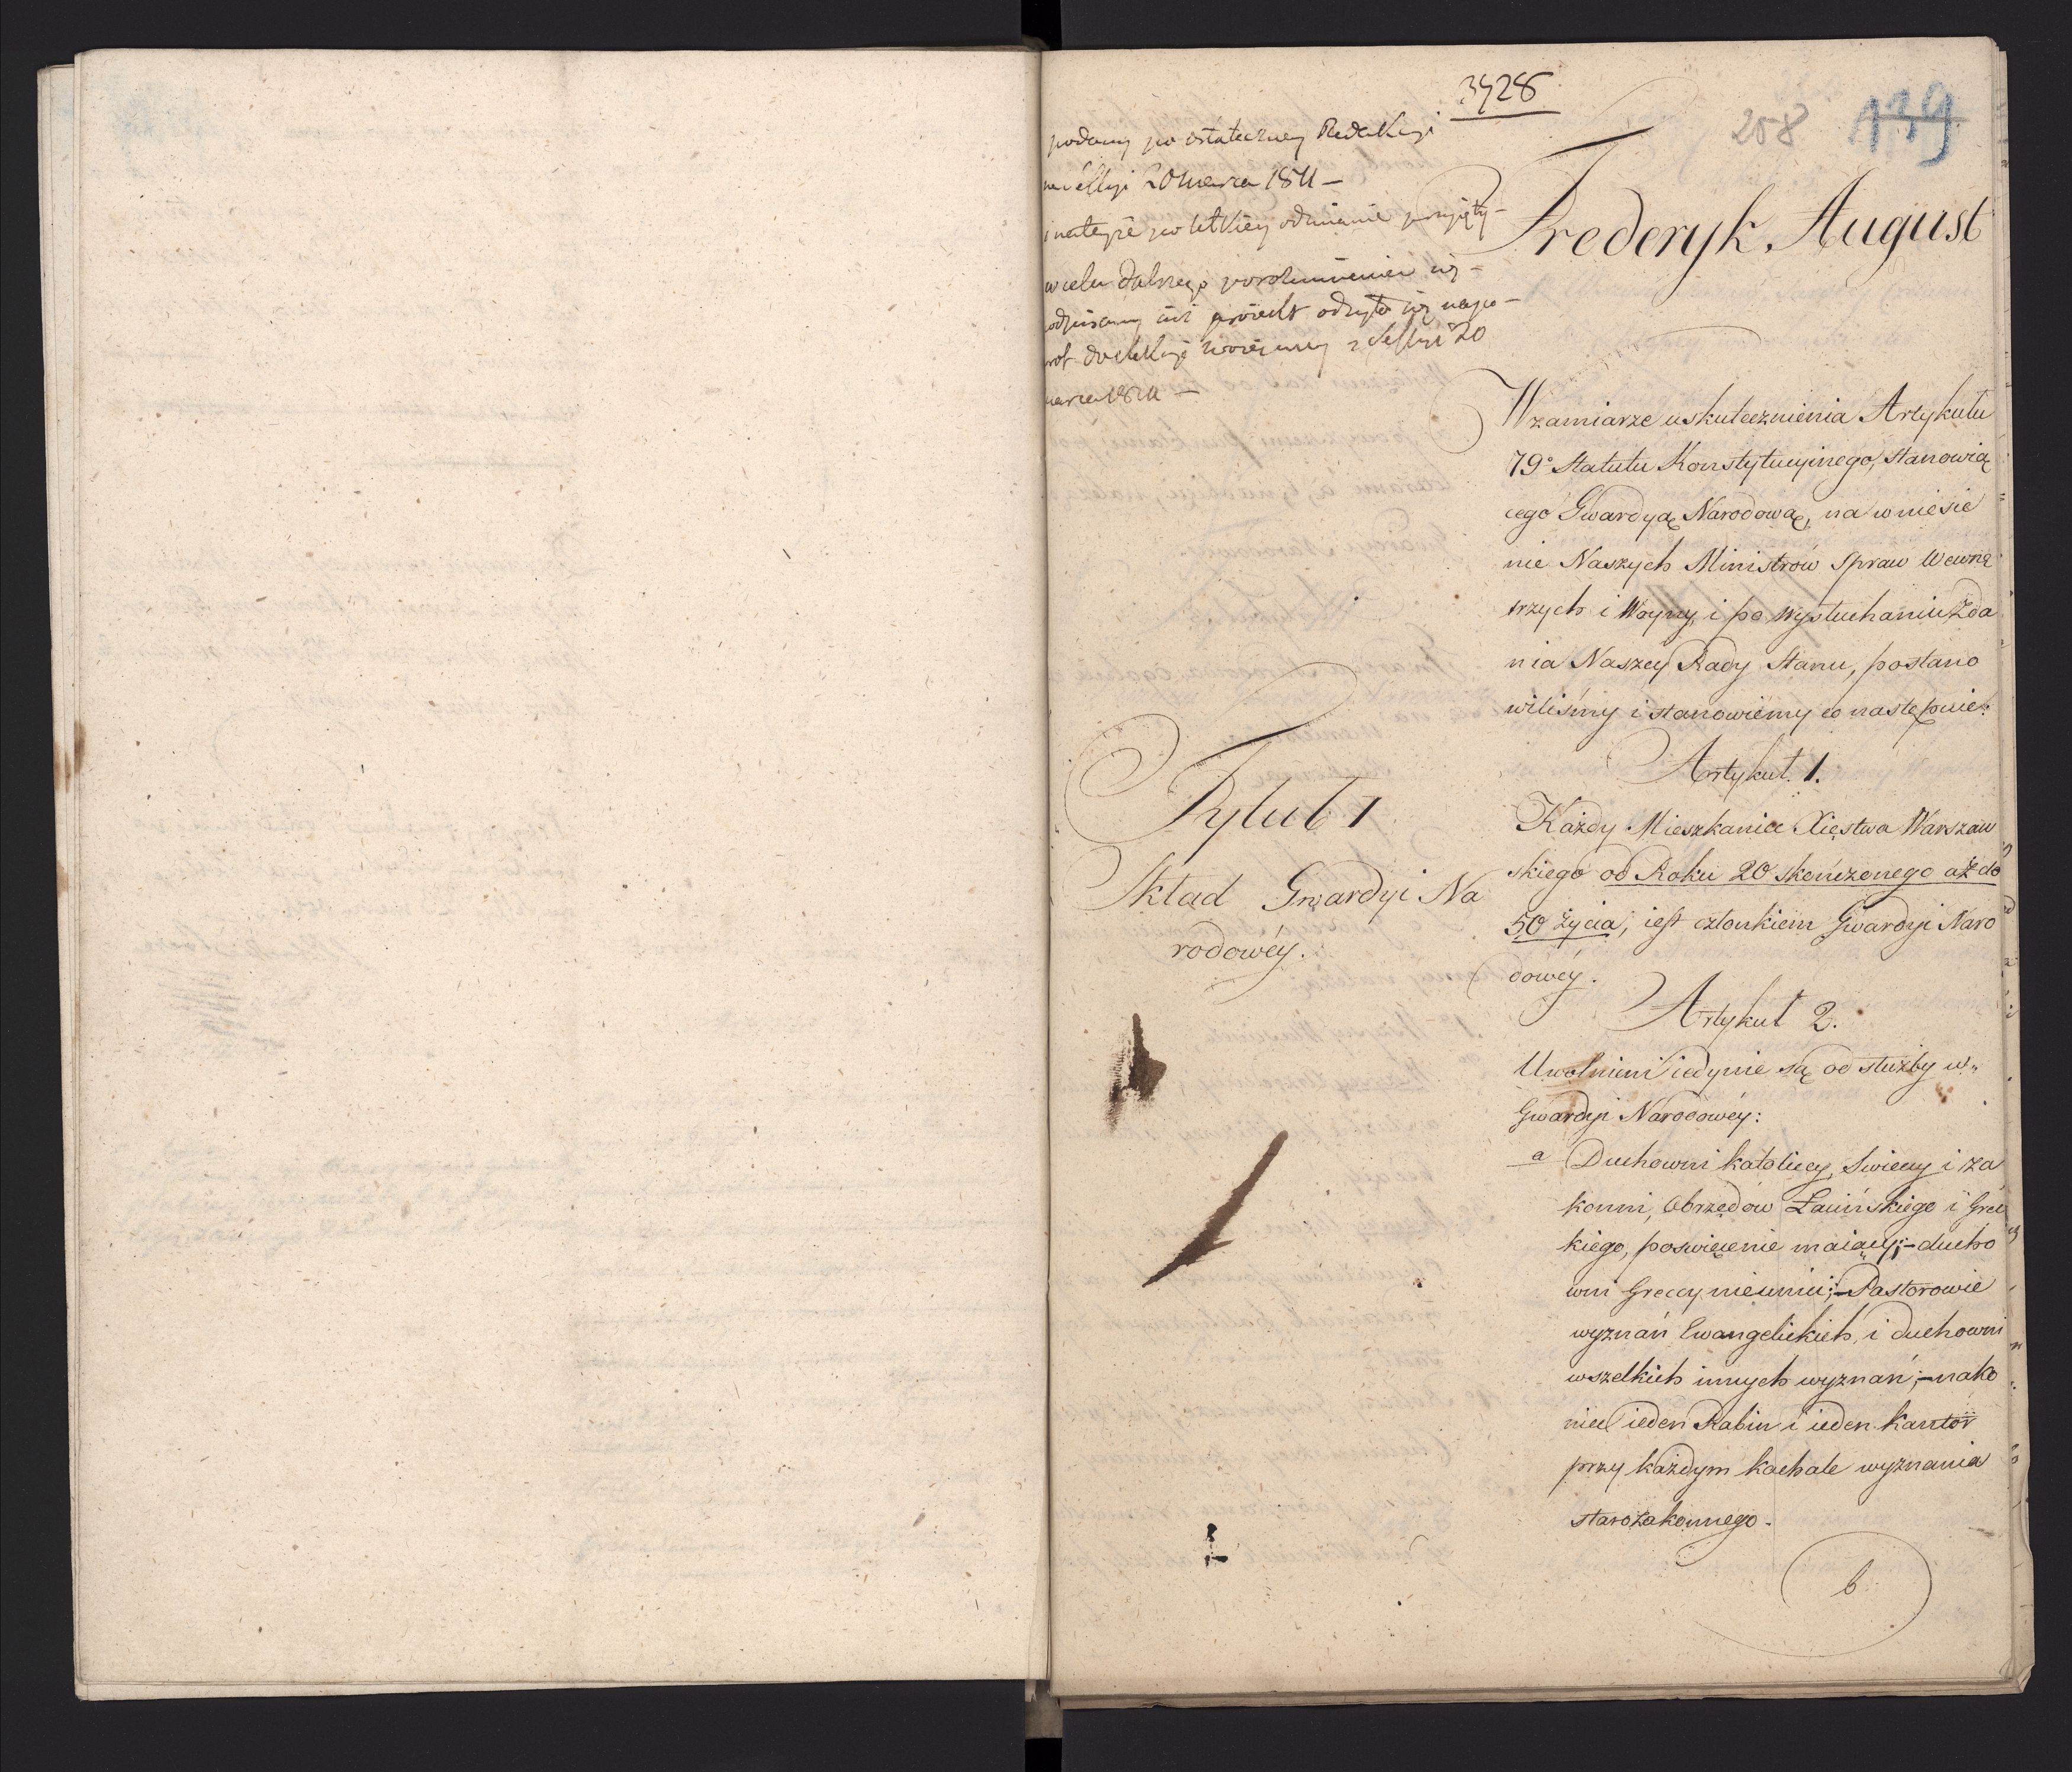 3428
258
139
podany po ostateczney Redakcyi
20 marca 1811 —
i po odmianie przyięty —
w celu dalszego porozumienia się —
proiekt odsyła się napo-
wrot do Sekcyi woienney z Sessyi 20
marca 1811 —
Frederyk August
W zamiarze uskutecznienia Artykułu
79º Statutu Konstytucyinego, stanowią
cego Gwardyą Narodową, na wniesie
nie Naszych Ministrów Spraw Wewnę
trzych i Woyny, i po wysłuchaniu Zda
nia Naszey Rady Stanu, postano
wiliśmy i stanowiemy co następuie:
Tytuł 1
Skład Gwardyi Na
rodowéy.
Artykuł. 1.
Każdy Mieszkaniec Xięstwa Warszaw
skiego od Roku 20 skończonego aż do
50 życia, iest członkiem Gwardyi Naro
dowéy.
Artykuł 2.
Uwolnieni iedynie są od służby w„
Gwardyi Narodowéy:
a Duchowni katoliccy, Swieccy i za
konni, Obrzędów Łacińskiego i Grec
kiego, poswięcenie maiący; – ducho
wni Greccy nieunici; – Pastorowie
wyznań Ewangelickich, i duchowni
wszelkich innych wyznań; – nako
niec ieden Rabin i ieden Kantor
przy każdym kachale wyznania
starozakonnego.
b